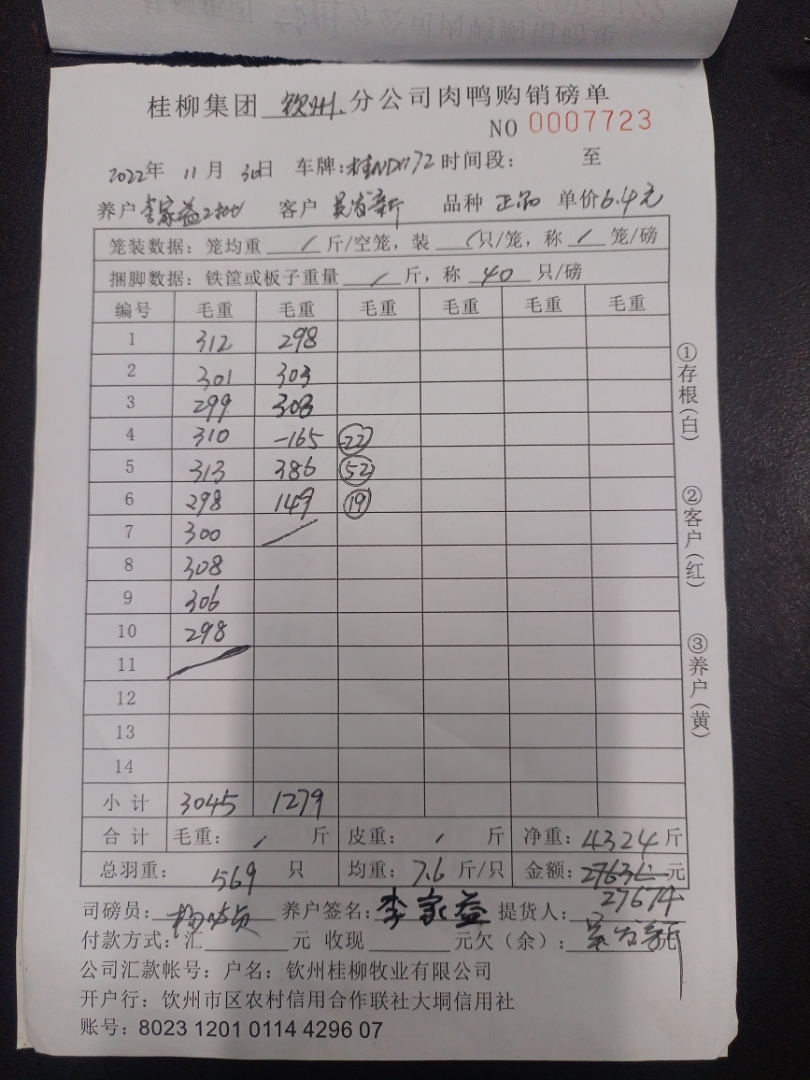 桂柳集团 钦州 分公司肉鸭购销磅单
NO 0007723
2022年 11月 30日 车牌：桂ND1172 时间段： 至
养户 李家益2800 客户 吴发新 品种 正品 单价6.4元
笼装数据：笼均重 / 斤/空笼，装 / 只/笼，称 / 笼/磅
捆脚数据：铁筐或板子重量 / 斤，称 40 只/磅
编号 毛重 毛重 毛重 毛重 毛重 毛重
1 312 298
2 301 303
3 299 308
4 310 -165 -22
5 313 386 52
6 298 149 19
7 300 /
8 308
9 306
10 298
11 /
12
13
14
小计 3045 1279
合计 毛重： / 斤 皮重： / 斤 净重：4324斤
总羽重： 569 只 均重：7.6斤/只 金额：元
27674
司磅员： 养户签名：李家益 提货人：
付款方式：汇 元 收现 元欠（余）：吴发新 元
公司汇款帐号：户名：钦州桂柳牧业有限公司
开户行：钦州市区农村信用合作联社大垌信用社
账号：8023 1201 0114 4296 07
①存根（白）
②客户（红）
③养户（黄）